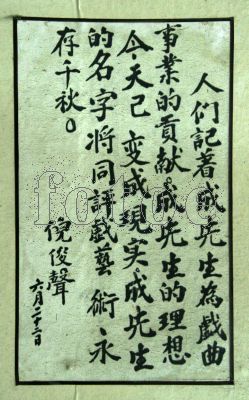 人们記著成先生為戲曲
事業的貢献。成先生的理想
今天已变成現实。成先生
的名字将同評戲藝術永
存千秋。
倪俊聲
六月二十二日